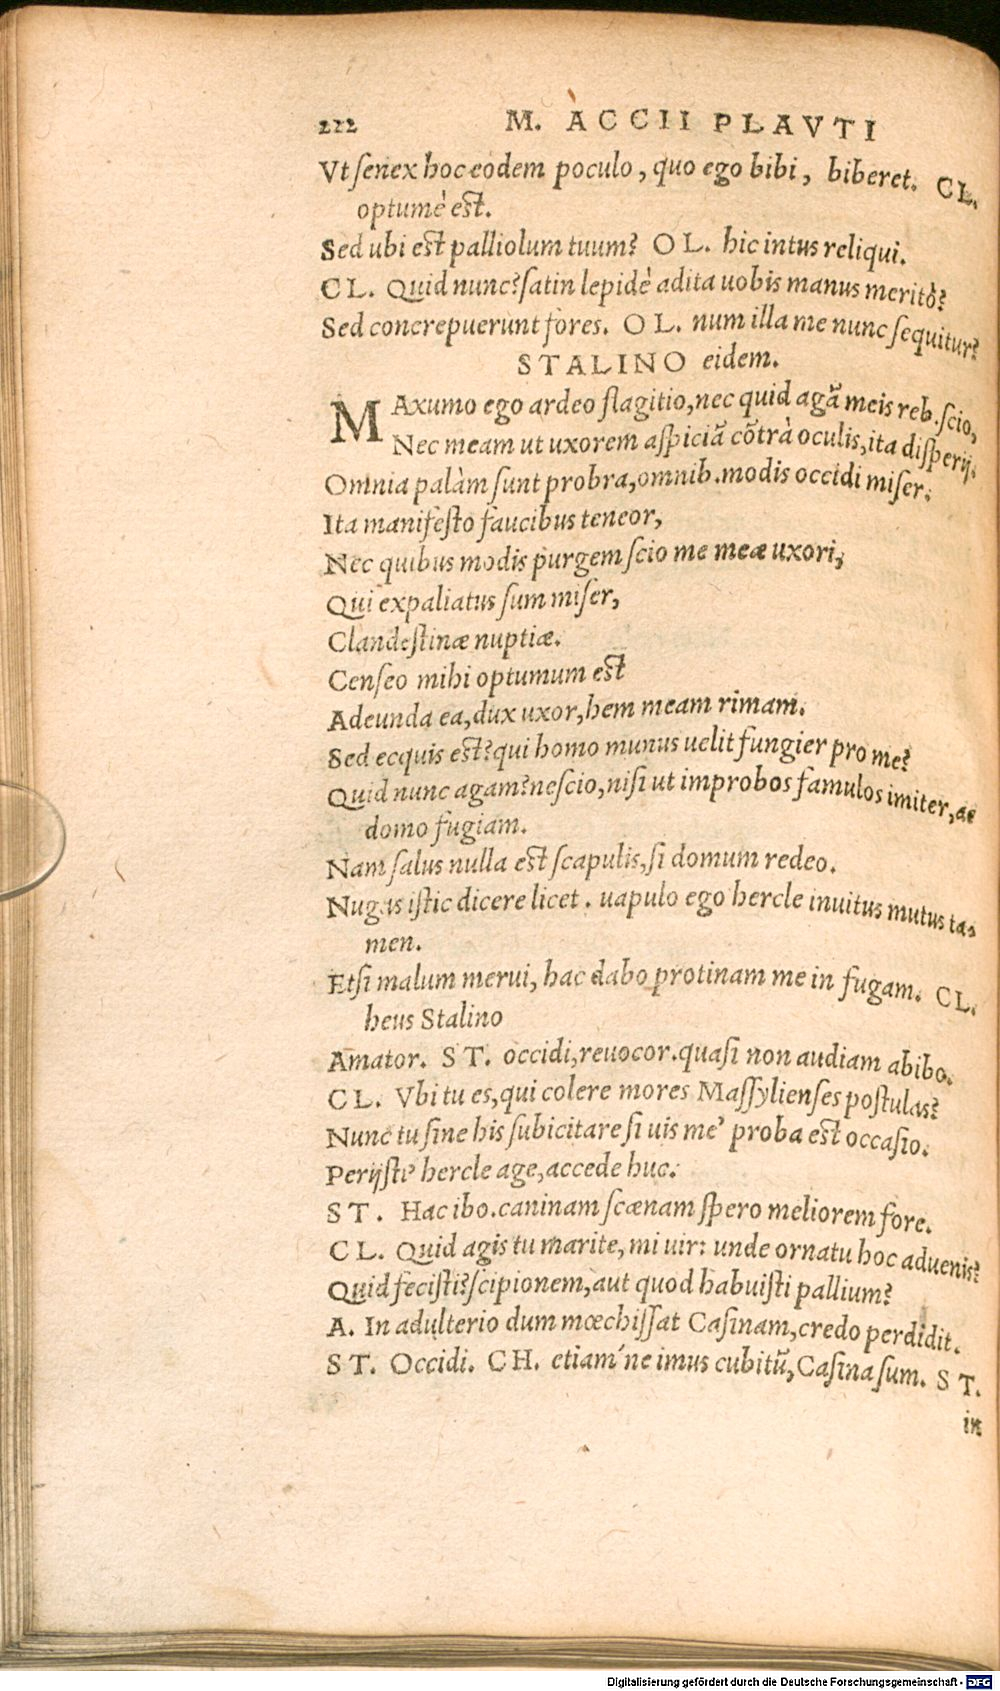 222 M. ACCII PLAVTI
Vt senex hoc eodem poculo, quo ego bibi, biberet. CL.
optumè est.
Sed ubi est palliolum tuum? OL. hic intus reliqui.
CL. Quid nunc? satin lepidè adita uobis manus meritò?
Sed concrepuerunt fores. OL. num illa me nunc sequitur?
STALINO eidem.
MAxumo ego ardeo flagitio, nec quid agã meis reb. scio,
Nec meam ut uxorem aspiciã cõtrà oculis, ita disperij.
Omnia palàm sunt probra, omnib. modis occidi miser.
Ita manifesto faucibus teneor,
Nec quibus modis purgem scio me meæ uxori,
Qui expaliatus sum miser,
Clandestinæ nuptiæ.
Censeo mihi optumum est
Adeunda ea, dux uxor, hem meam rimam.
Sed ecquis est? qui homo munus uelit fungier pro me?
Quid nunc agam? nescio, nisi ut improbos famulos imiter, ac
domo fugiam.
Nam salus nulla est scapulis, si domum redeo.
Nugas istic dicere licet. uapulo ego hercle inuitus mutus ta-
men.
Etsi malum merui, hac dabo protinam me in fugam. CL.
heus Stalino
Amator. ST. occidi, reuocor. quasi non audiam abibo.
CL. Vbi tu es, qui colere mores Massylienses postulas?
Nunc tu sine his subicitare si uis me' proba est occasio.
Perijsti' hercle age, accede huc.
ST. Hac ibo. caninam scænam spero meliorem fore.
CL. Quid agis tu marite, mi uir: unde ornatu hoc aduenis?
Quid fecisti? scipionem, aut quod habuisti pallium?
A. In adulterio dum mœchissat Casinam, credo perdidit.
ST. Occidi. CH. etiam'ne imus cubitũ, Casina sum. ST.
in
Digitalisierung gefördert durch die Deutsche Forschungsgemeinschaft - DFG